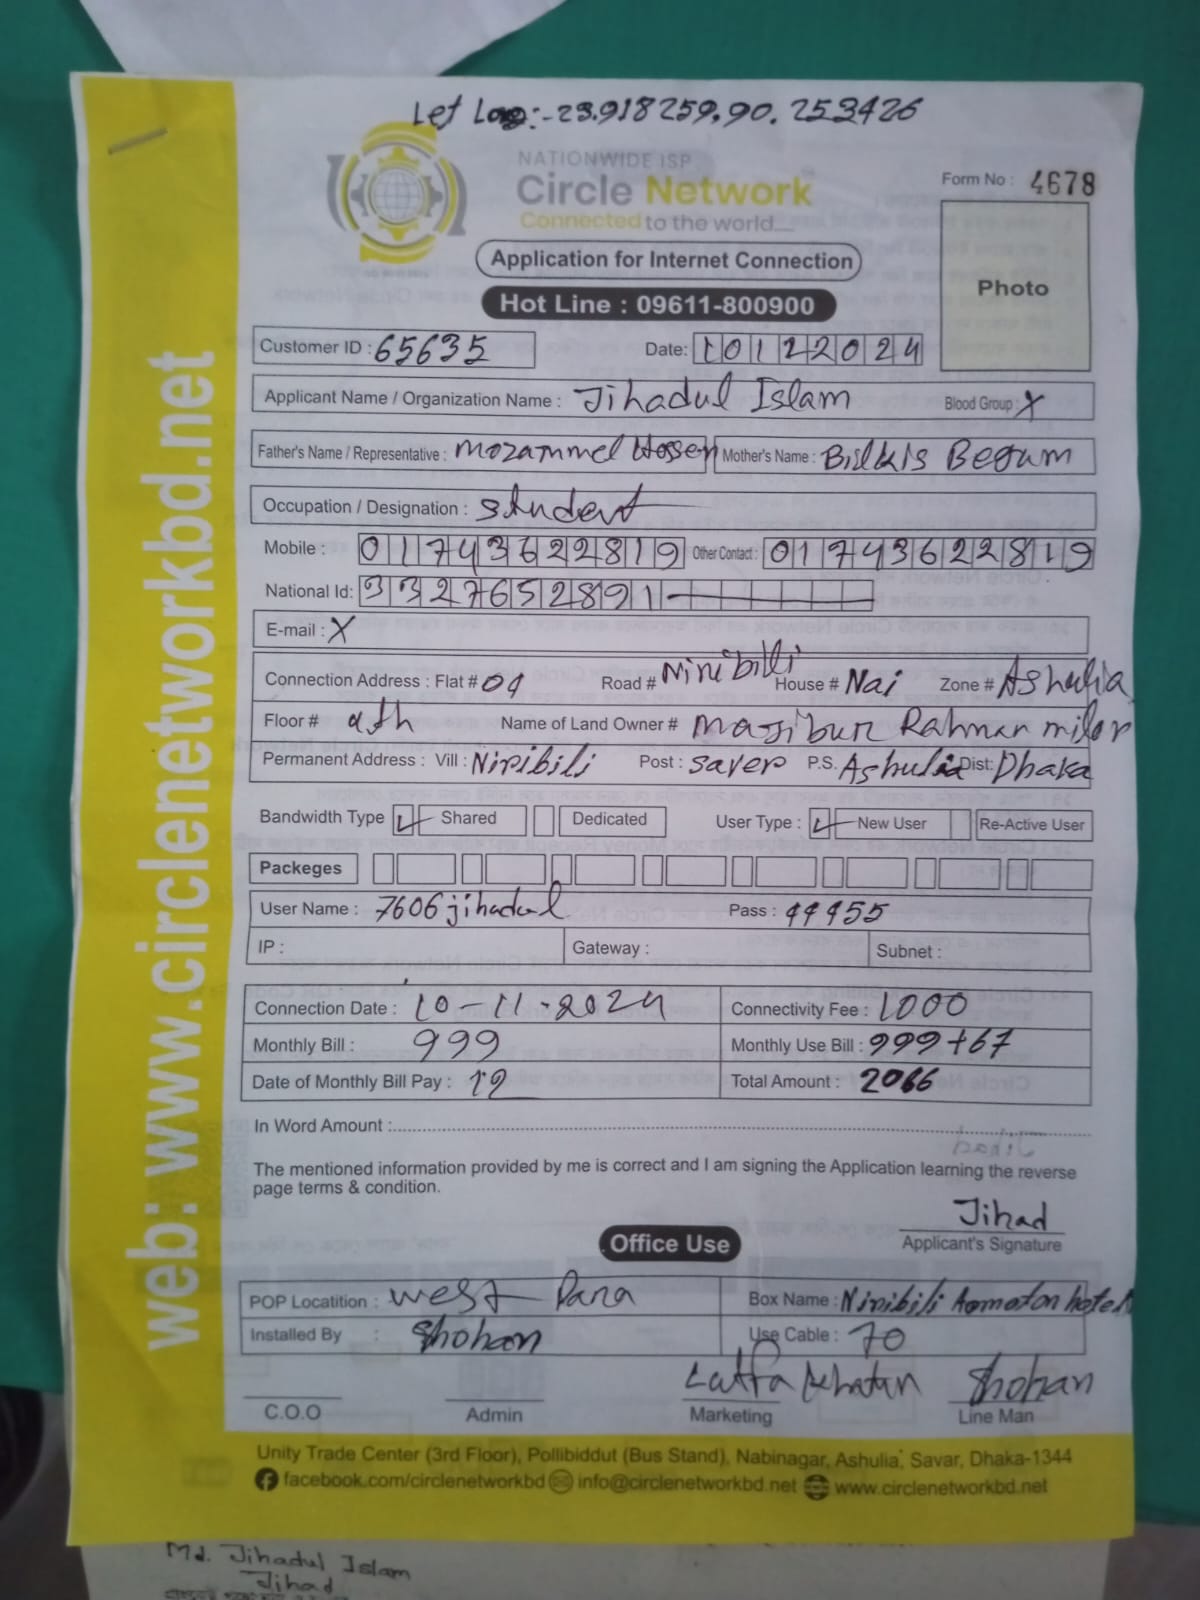 Let Log:-23.918259,90.253426
NATIONWIDE ISP
Circle Network
Connected to the world....
Form No : 4678
Application for Internet Connection
Photo
Hot Line : 09611-800900
Customer ID : 65635 Date: 10122024
Applicant Name / Organization Name : Jihadul Islam Blood Group : X
Father's Name / Representative : Mozammel Hossen Mother's Name : Bilkis Begum
Occupation / Designation : Student
Mobile : 01743622819 Other Contact : 01743622819
National Id: 3327652891
E-mail : X
Connection Address : Flat # 04 Road # Niribilli House # Nai Zone # Ashulia
Floor # 4th Name of Land Owner # Majibur Rahman
Permanent Address : Vill : Niribili Post : Saver P.S. Ashulia Dist: Dhaka
Bandwidth Type ✓ Shared Dedicated User Type : ✓ New User Re-Active User
Packeges
User Name : 7606jihadul Pass : 44455
IP : Gateway : Subnet :
Connection Date : 10-11-2024 Connectivity Fee : 1000
Monthly Bill : 999 Monthly Use Bill : 999+67
Date of Monthly Bill Pay : 12 Total Amount : 2066
In Word Amount :
The mentioned information provided by me is correct and I am signing the Application learning the reverse
page terms & condition.
Jihad
Applicant's Signature
Office Use
POP Locatition : West Para Box Name : Niribili hotel
Installed By : Shohan Use Cable : 70
Khatun Shohan
C.O.O Admin Marketing Line Man
Unity Trade Center (3rd Floor), Pollibiddut (Bus Stand), Nabinagar, Ashulia, Savar, Dhaka-1344
facebook.com/circlenetworkbd info@circlenetworkbd.net www.circlenetworkbd.net
web: www.circlenetworkbd.net
Md. Jihadul Islam
Jihad